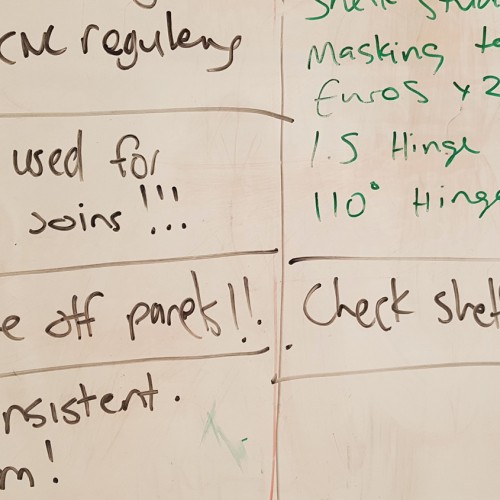 CNC regulerly
used for
Joins !!!
e off panels!!.
nsistent.
m!
Masking te
Euros x 2
1.5 Hinge
110° Hinge
Check shel